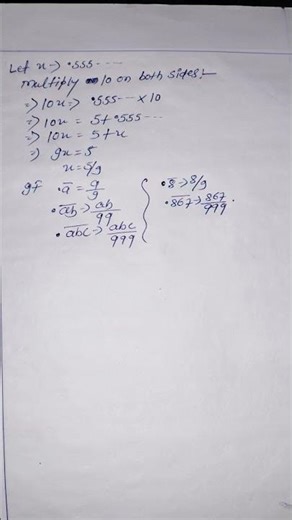 Let x → .555----
multiply 10 on both sides:-
⇒ 10x → .555--- × 10
⇒ 10x = 5 + .555---
⇒ 10x = 5 + x
⇒ 9x = 5
x = 5/9
If .a̅ = a/9
.a̅b̅ → ab/99
.a̅b̅c̅ → abc/999
.8̅ → 8/9
.8̅6̅7̅ → 867/999.